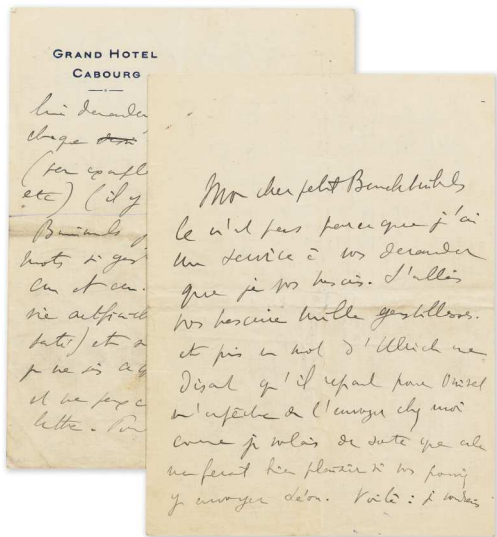 GRAND HOTEL
CABOURG
lui demander
chaque
(par exemple
etc) (il y
Binibuls
mots si
vie artificiel
santé) et
je ne sais ce q
et ne peux c
lettre. Pour
Mon cher petit
Ce n'est pas parce que j'ai
un service à vos demander
que je vos hescris. J'allais
vos hescrire mille gentillesses.
et puis un mot d'Ulrich me
disant qu'il repart pour
m'empêche de l'envoyer chez moi
comme je voulais de sorte que cela
me ferait bien plaisir si vos pouviez
y envoyer Léon. Voilà : je voudrais